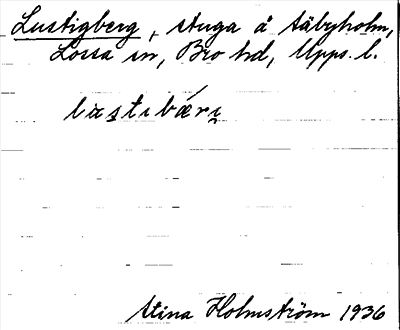 Lustigberg, stuga å Täbyholm,
Lossa sn, Bro hd, Upps. l.
Stina Holmström 1936